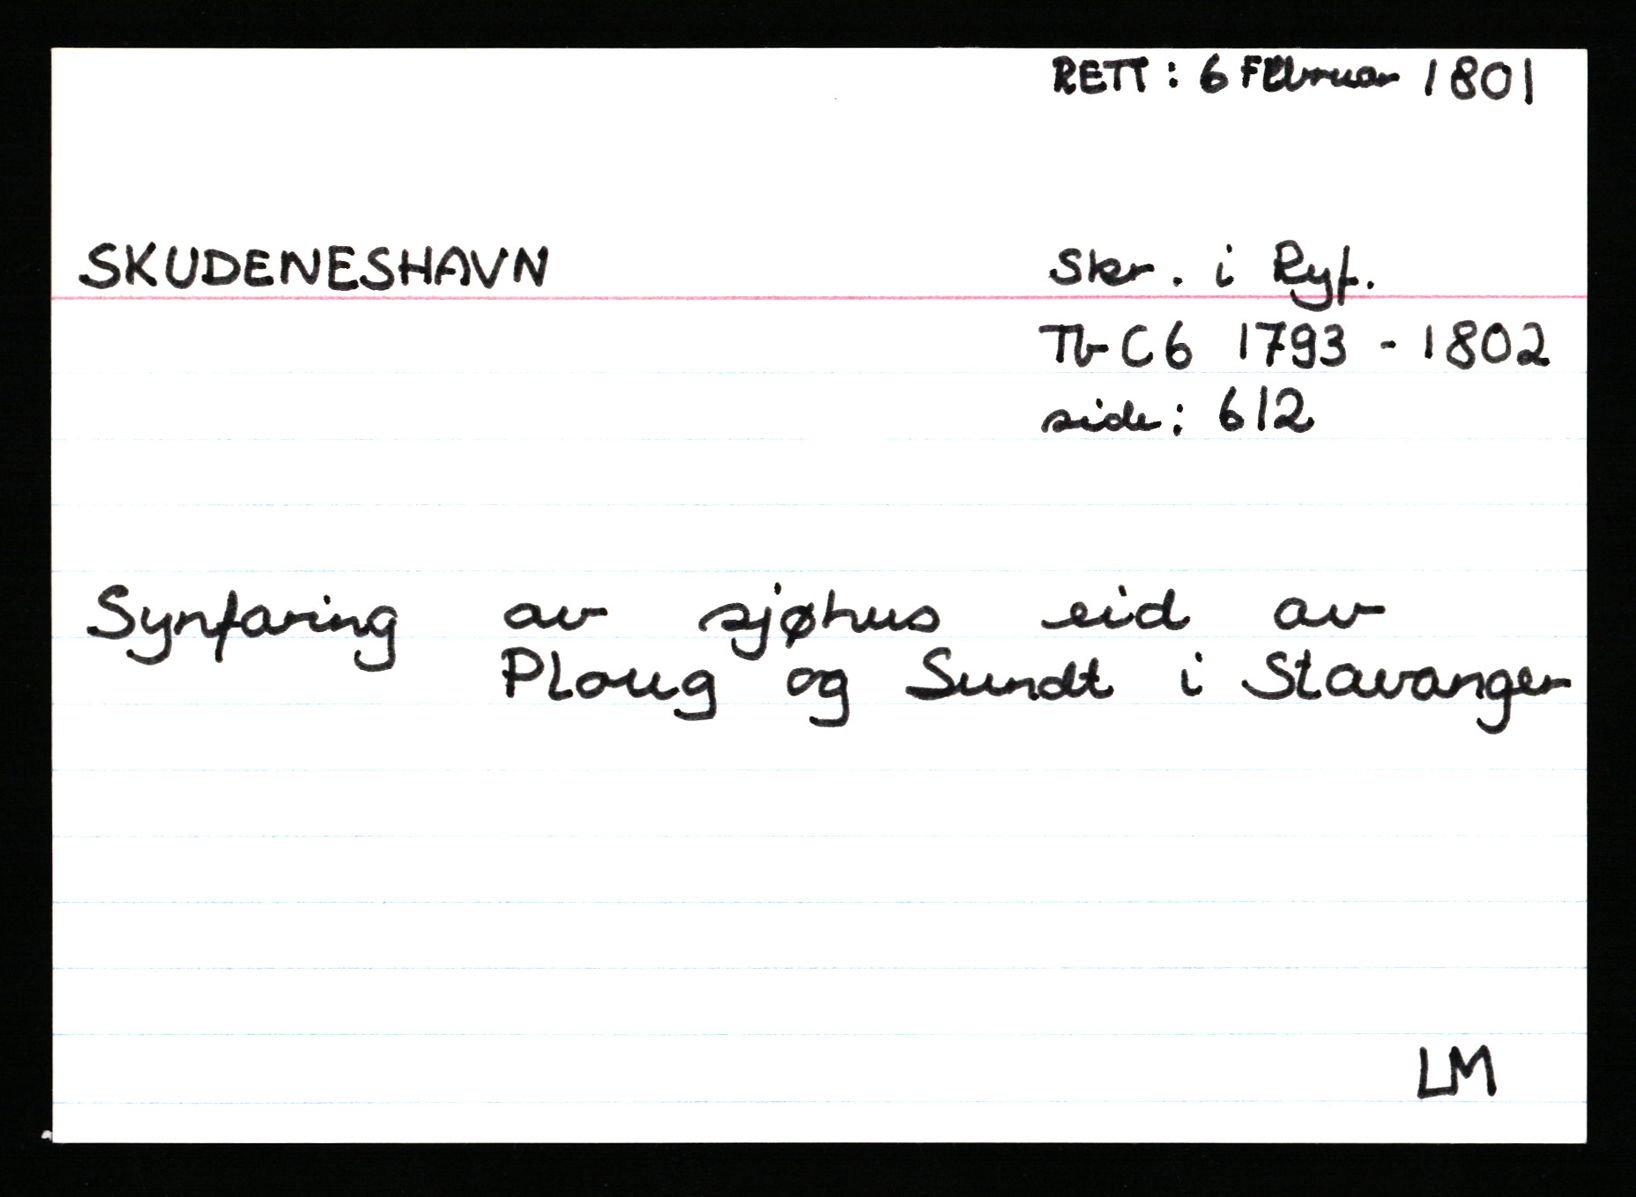 RETT: 6 FEbruar 1801
SKUDENESHAVN
Skr. i Ryf.
Tb C6 1793 - 1802
side: 612
Synfaring av sjøhus eid av
Ploug og Sundt i Stavanger
LM